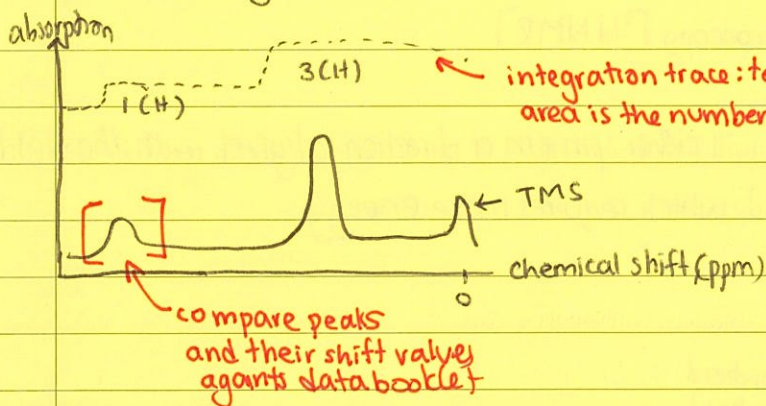 absorption
3(H)
1(H)
integration trace: te
area is the number
← TMS
chemical shift (ppm)
0
compare peaks
and their shift values
agants databooklet